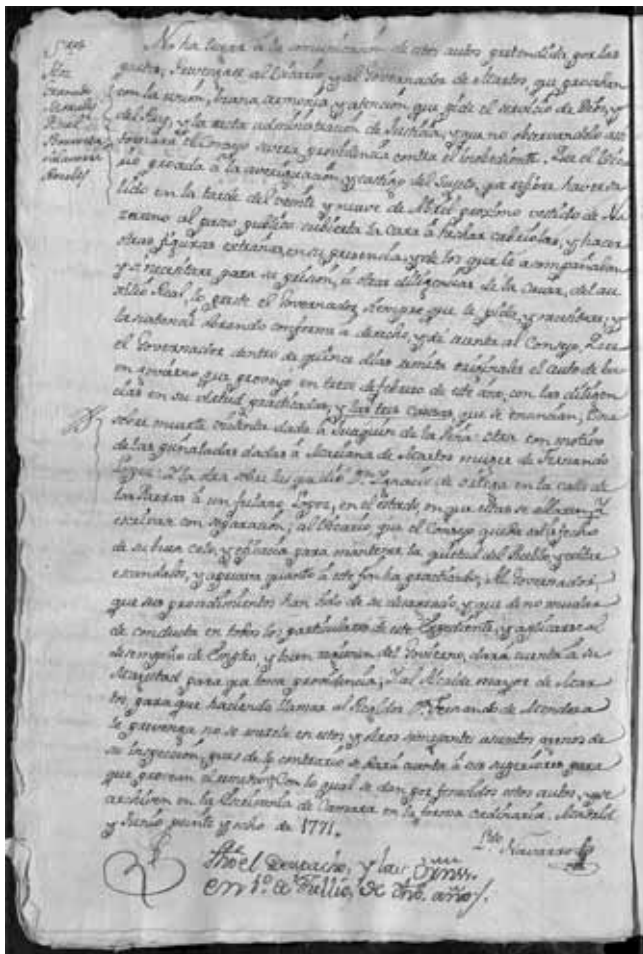 Sres
No ha lugar á la comunicación de estos autos pretendida por las
partes, prevengase al Vicario, y al Governador de Martos, que procedan
con la unión, buena armonia, y atención que pide el servicio de Dios, y
del Rey, y la recta administración de Justicia, y que no observandolo asi
tomará el Consejo severa providencia contra el inobediente. Que el Vica
rio proceda á la averiguación, y castigo del Sugeto, que refiere haver sa
lido en la tarde del veinte y nueve de Abril proximo vestido de Na
zareno al paseo publico cubierta la cara á hechar cabriolas, y hacer
otras figuras extrañas, en su presencia, y de los que le acompañaban
y si necesitare para su prisión, ú otras diligencias de la Causa, del au
xilio Real, lo preste el Governador siempre que le pida, y necesitare, y
la substancie obrando conforme á derecho, y dé cuenta al Consejo. Que
el Governador dentro de quince dias remita originales el auto de bu
en govierno que proveyó en trece de febrero de este año, con las diligen
cias en su virtud practicadas, y las tres causas, que se enuncian, Una
sobre muerte violenta dada á Juaquin de la Peña: otra con motivo
de las puñaladas dadas á Mariana de Martos muger de Fernando
Lopez: Y la otra sobre las que dió Dn Ignacio de Ortega en la calle de
las Parras á un fulano Lopez, en el estado, en que estas se hallaren. Y
escrivase con separación; al Vicario, que el Consejo queda satisfecho
de su buen celo, y eficacia para mantener la quietud del Pueblo, y evitar
escandalos, y aprueva quanto á este fin ha practicado; Al Governador,
que sus procedimientos han sido de su desagrado, y que de no mudar
de conducta en todos los particulares de este Expediente, y aplicarse al
desempeño de Empleo, y buen regimen del Govierno, dará cuenta á su
Magestad para que tome providencia; Y al Alcalde mayor de Mar
tos, para que haciendo llamar al Regidor Dn Fernando de Mendoza
le prevenga no se mezcle en estos, y otros semejantes asuntos agenos de
su inspección, pues de lo contrario se dará cuenta á sus superiores para
que provean el remedio; Con lo qual se dan por fenecidos estos autos, y se
archiven en la Escrivania de Camara en la forma ordinaria. Madrid
y Junio veinte y ocho de 1771.
Navarro
fho el Despacho, y las
en 1º de Jullio, de dho año